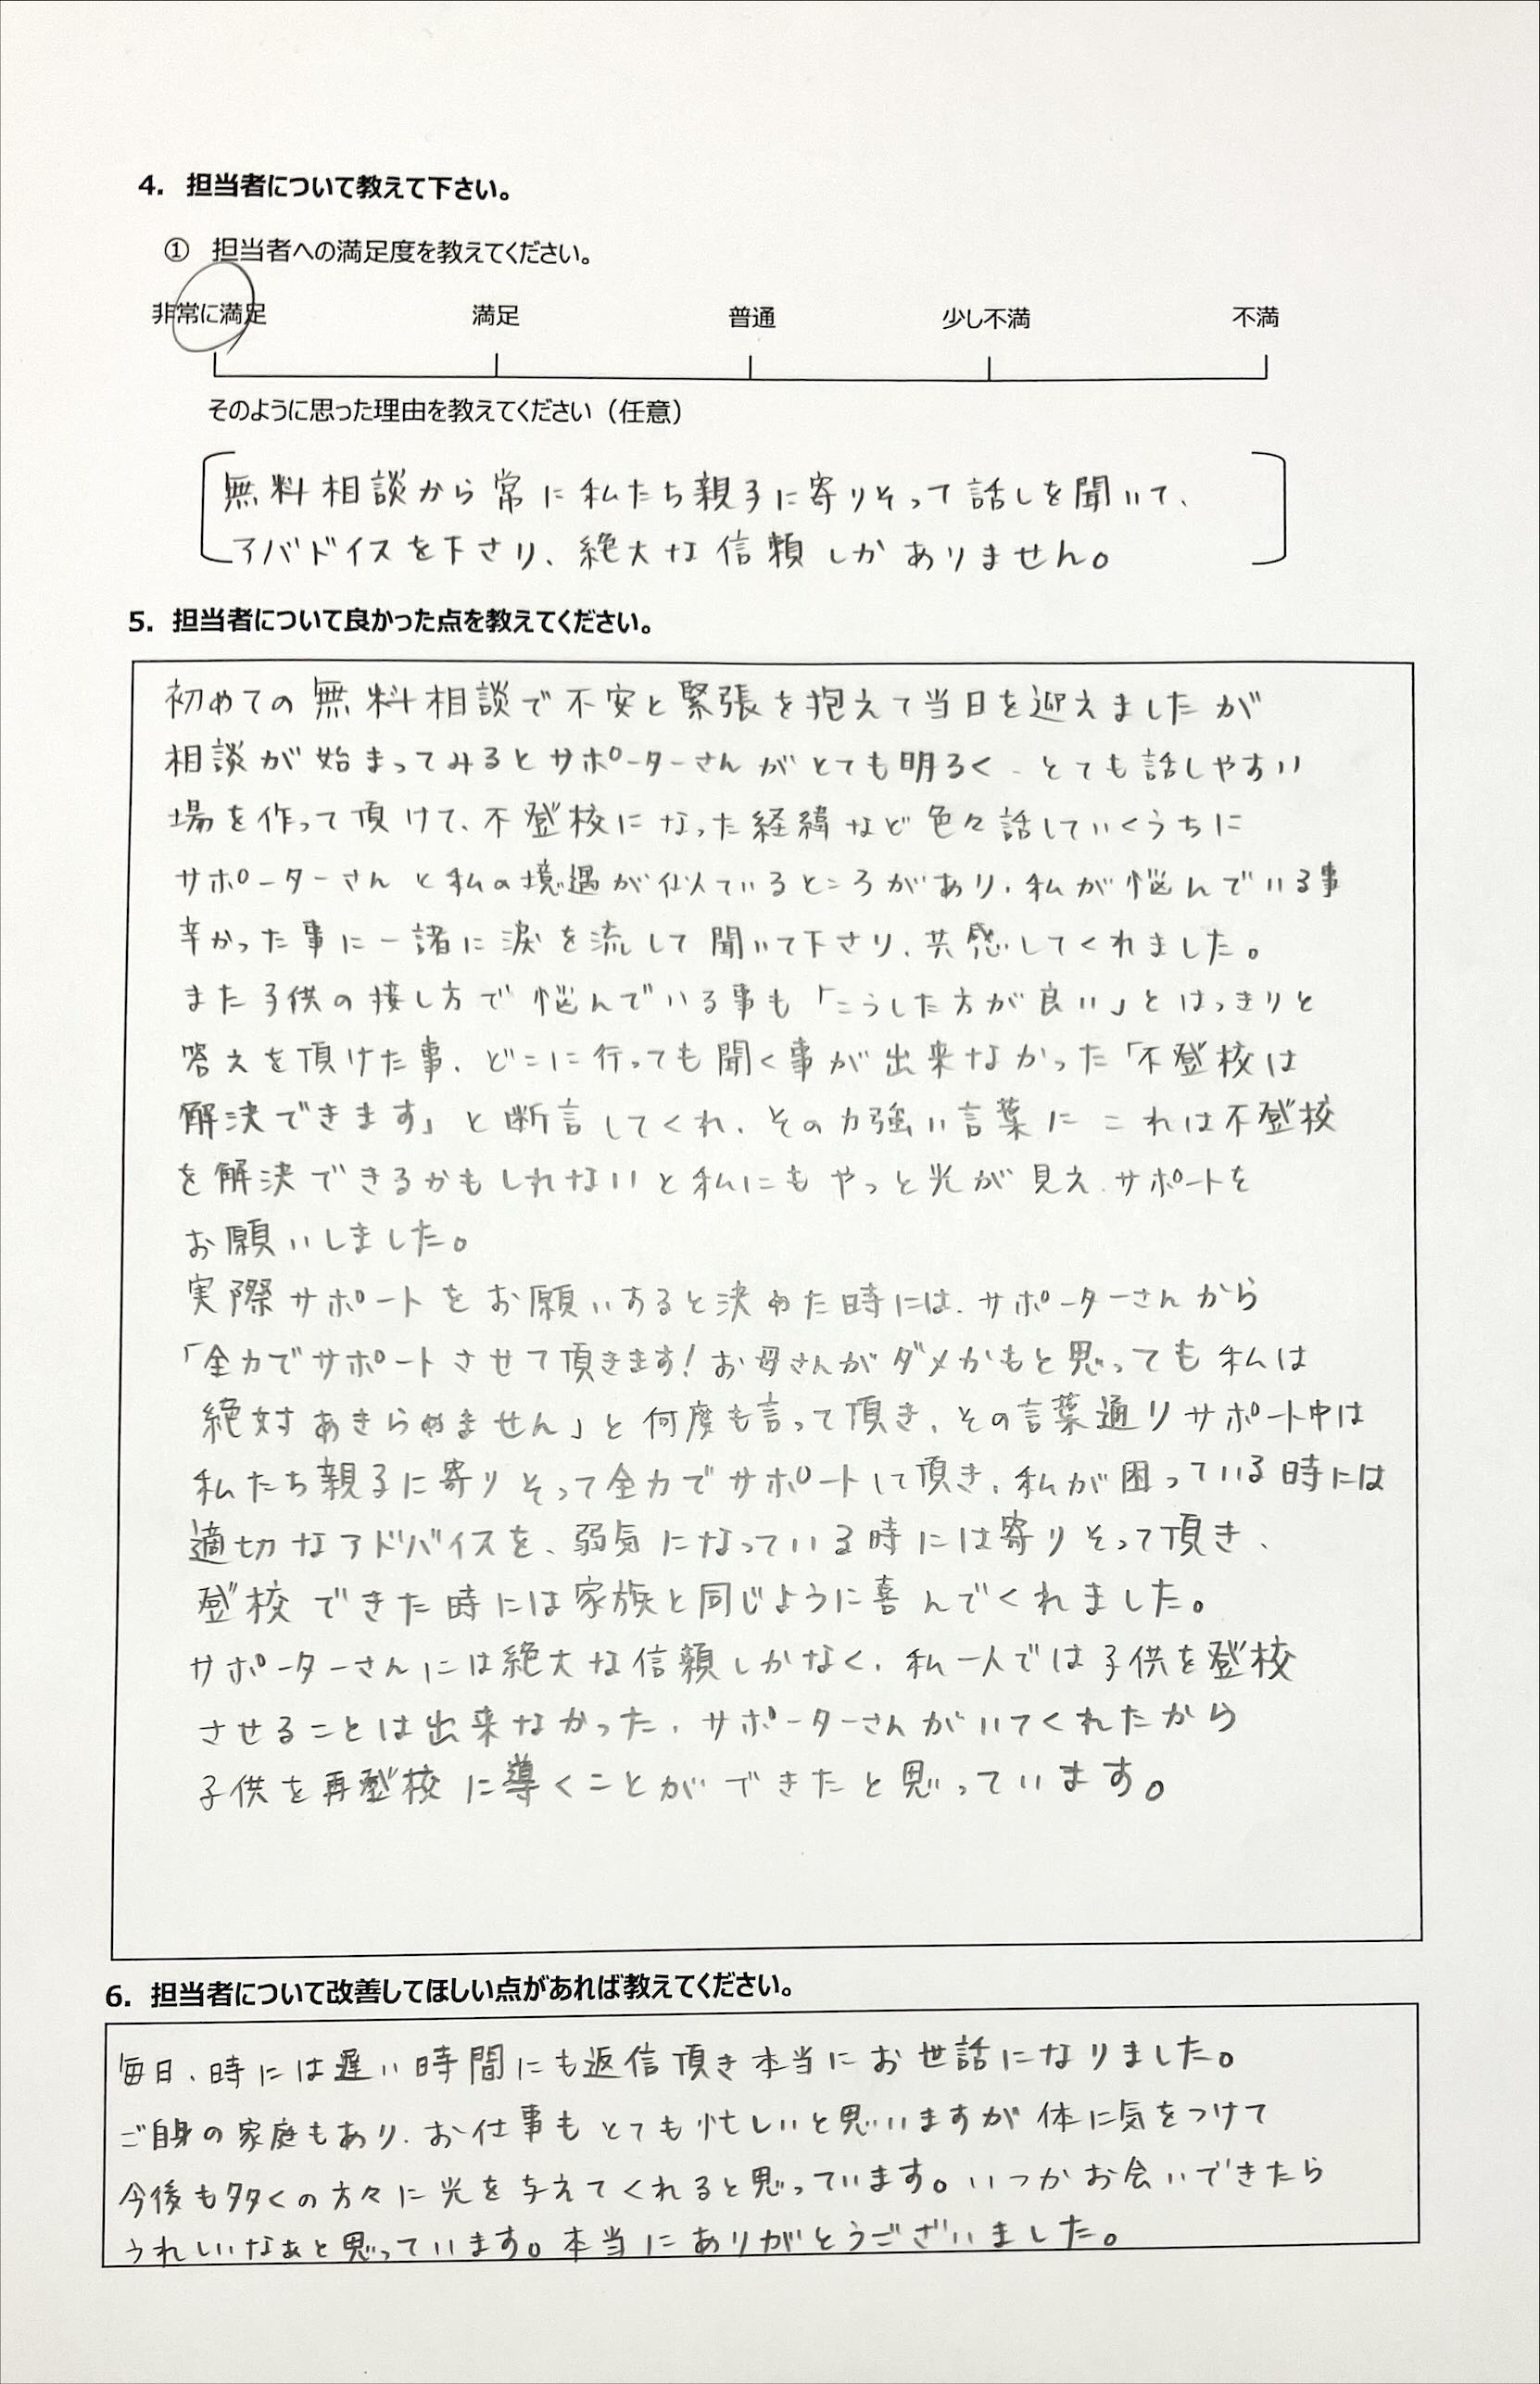 4. 担当者について教えて下さい。
① 担当者への満足度を教えてください。
非常に満足 満足 普通 少し不満 不満
そのように思った理由を教えてください（任意）
無料相談から常に私たち親子に寄りそって話しを聞いて、
アバドイスを下さり、絶大な信頼しかありません。
5. 担当者について良かった点を教えてください。
初めての無料相談で不安と緊張を抱えて当日を迎えましたが
相談が始まってみるとサポーターさんがとても明るく、とても話しやすい
場を作って頂けて、不登校になった経緯など色々話していくうちに
サポーターさんと私の境遇が似ているところがあり、私が悩んでいる事
辛かった事に一諸に涙を流して聞いて下さり、共感してくれました。
また子供の接し方で悩んでいる事も「こうした方が良い」とはっきりと
答えを頂けた事、どこに行っても聞く事が出来なかった「不登校は
解決できます」と断言してくれ、その力強い言葉にこれは不登校
を解決できるかもしれないと私にもやっと光が見え、サポートを
お願いしました。
実際サポートをお願いすると決めた時には、サポーターさんから
「全力でサポートさせて頂きます!お母さんがダメかもと思っても私は
絶対あきらめません」と何度も言って頂き、その言葉通りサポート中は
私たち親子に寄りそって全力でサポートして頂き、私が困っている時には
適切なアドバイスを、弱気になっている時には寄りそって頂き、
登校できた時には家族と同じように喜んでくれました。
サポーターさんには絶大な信頼しかなく、私一人では子供を登校
させることは出来なかった、サポーターさんがいてくれたから
子供を再登校に導くことができたと思っています。
6. 担当者について改善してほしい点があれば教えてください。
毎日、時には遅い時間にも返信頂き本当にお世話になりました。
ご自身の家庭もあり、お仕事もとても忙しいと思いますが体に気をつけて
今後も多くの方々に光を与えてくれると思っています。いつかお会いできたら
うれしいなぁと思っています。本当にありがとうございました。